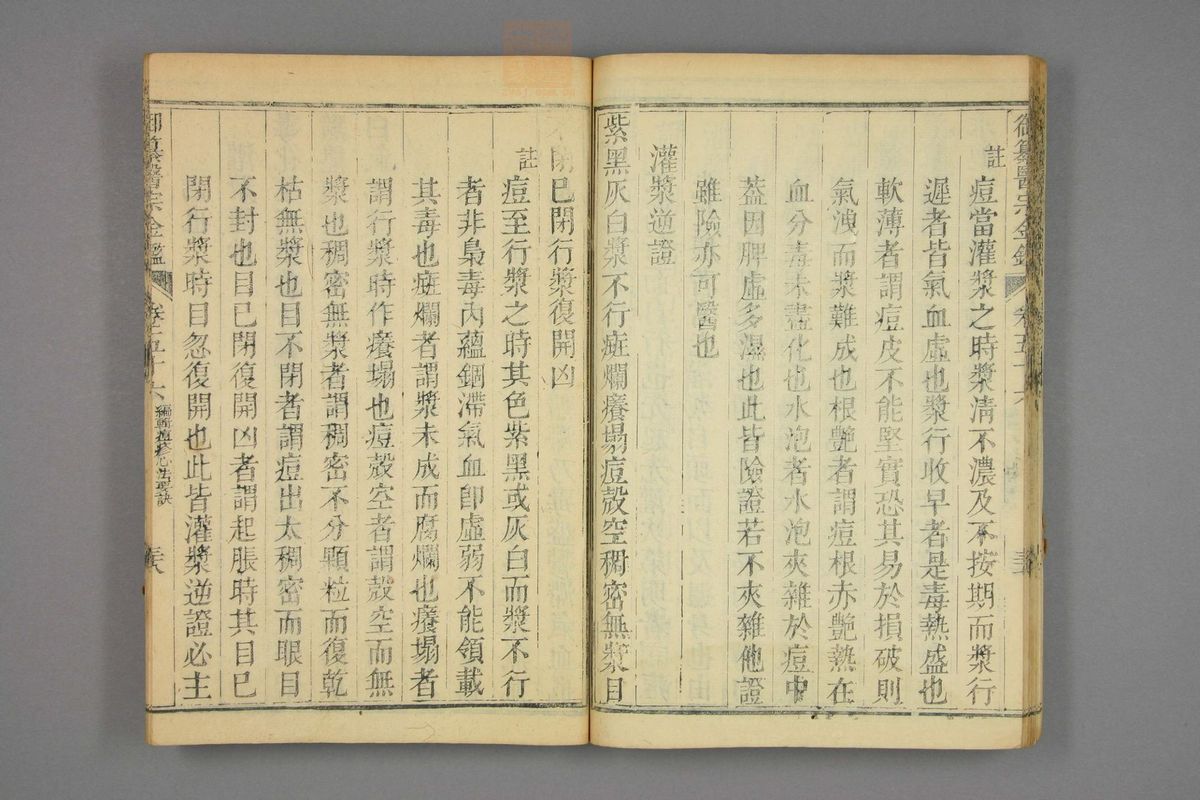 御纂醫宗金鑑 卷五十六
註 痘當灌漿之時漿淸不濃及不按期而漿行
遲者皆氣血虛也漿行收早者是毒熱盛也
軟薄者謂痘皮不能堅實恐其易於損破則
氣洩而漿難成也根艷者謂痘根赤艷熱在
血分毒未盡化也水泡者水泡夾雜於痘中
葢因脾虛多濕也此皆險證若不夾雜他證
雖險亦可醫也
灌漿逆證
紫黑灰白漿不行㾦爛癢塌痘殼空稠密無漿目
閉已閉行漿復開凶
註 痘至行漿之時其色紫黑或灰白而漿不行
者非梟毒內蘊錮滯氣血卽虛弱不能領載
其毒也㾦爛者謂漿未成而腐爛也癢塌者
謂行漿時作癢塌也痘殼空者謂殼空而無
漿也稠密無漿者謂稠密不分顆粒而復乾
枯無漿也目不閉者謂痘出太稠密而眼目
不封也目已閉復開凶者謂起脹時其目已
閉行漿時目忽復開也此皆灌漿逆證必主
御纂醫宗金鑑 卷五十六 編輯痘疹心法要訣 三六